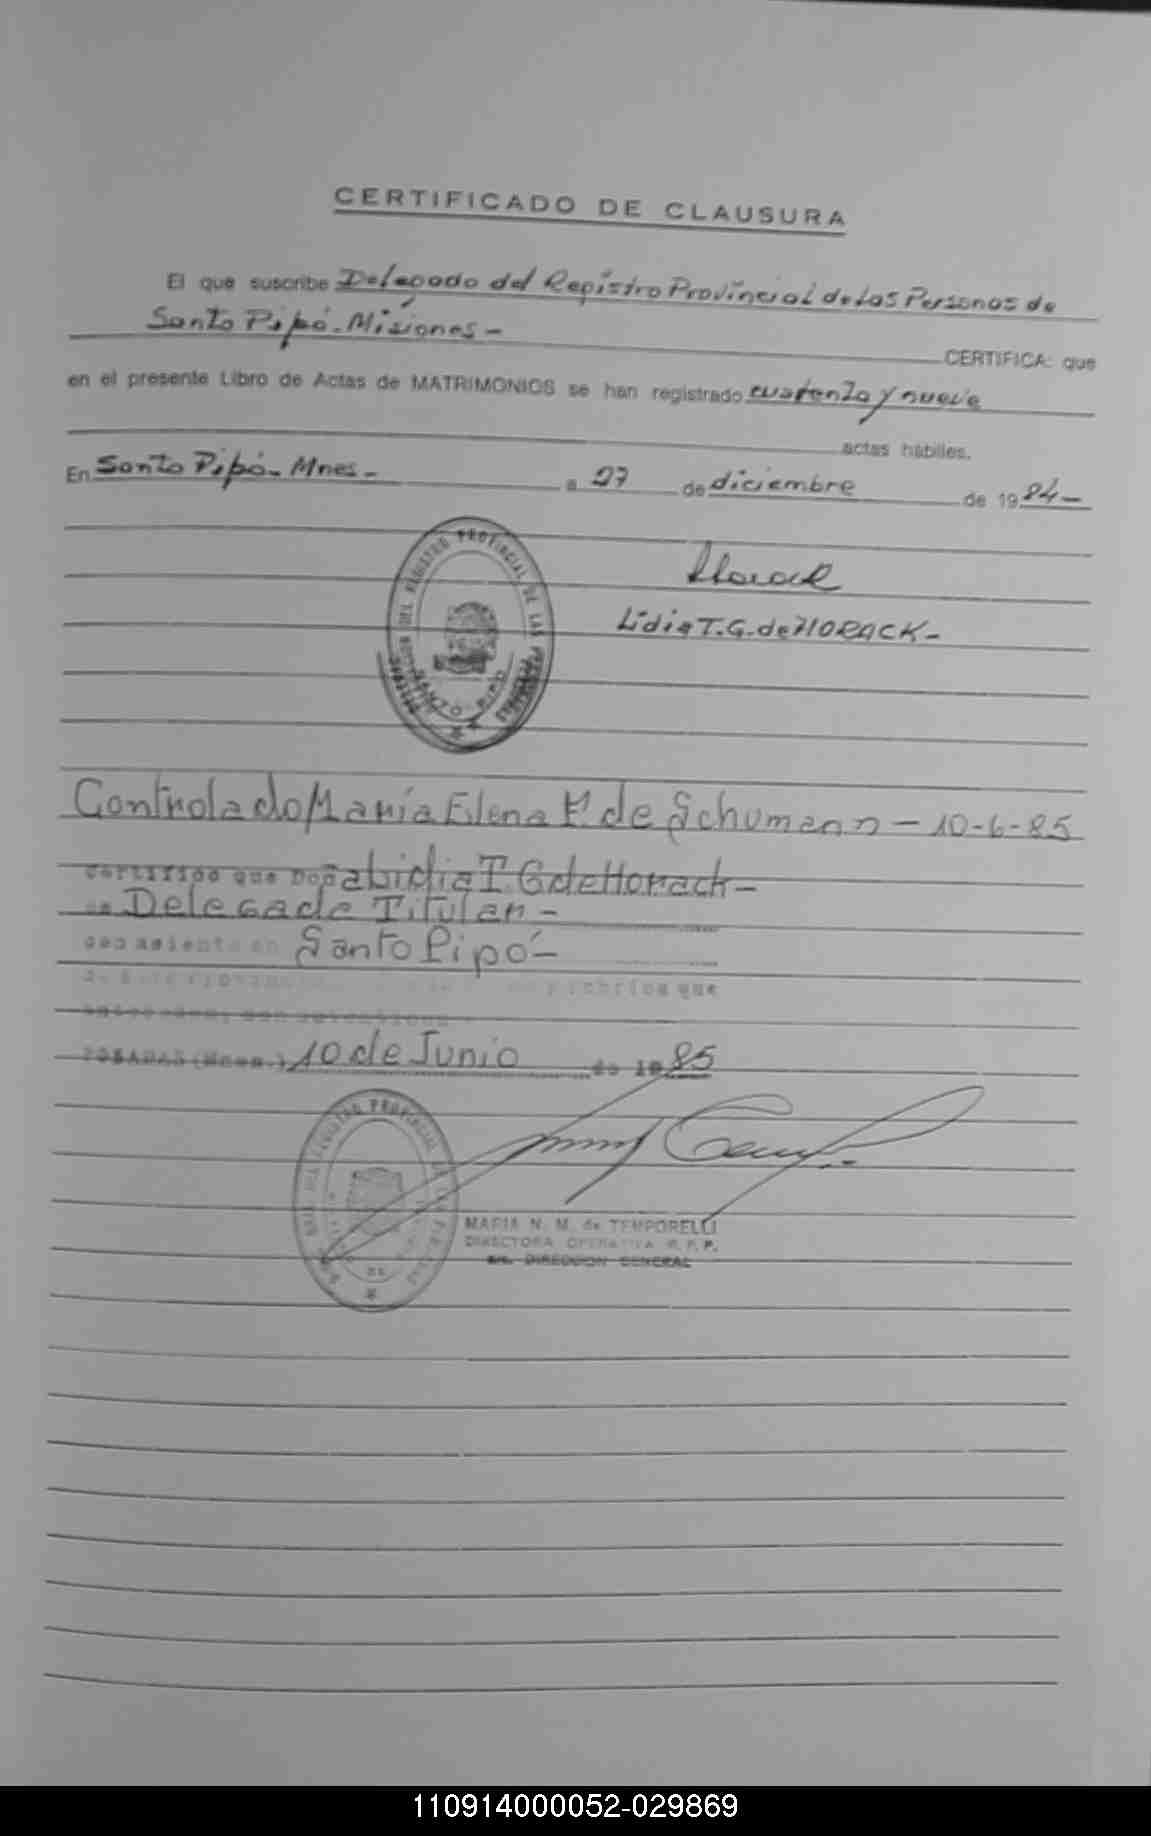 CERTIFICADO DE CLAUSURA
El que suscribe Delegado del Registro Provincial de las Personas de
Santo Pipó - Misiones -
CERTIFICA: que
en el presente Libro de Actas de MATRIMONIOS se han registrado cuarenta y nueve
actas hábiles.
En Santo Pipó - Mnes - a 27 de diciembre de 1984 -
REGISTRO PROVINCIAL DE LAS
SANTO PIPO
Lidia T. G. de HORACK -
Controlado María Elena K. de Schumann - 10-6-85
Certifico que Doña Lidia T. G de Horack -
Delegada Titular -
con asiento en Santo Pipó -
que
POSADAS (Mnes.) 10 de Junio de 1985
DEL REGISTRO PROVINCIAL DE LAS
MARIA N. M. de TEMPORELLI
DIRECTORA OPERATIVA R. P. P.
a/c. DIRECCION GENERAL
110914000052-029869